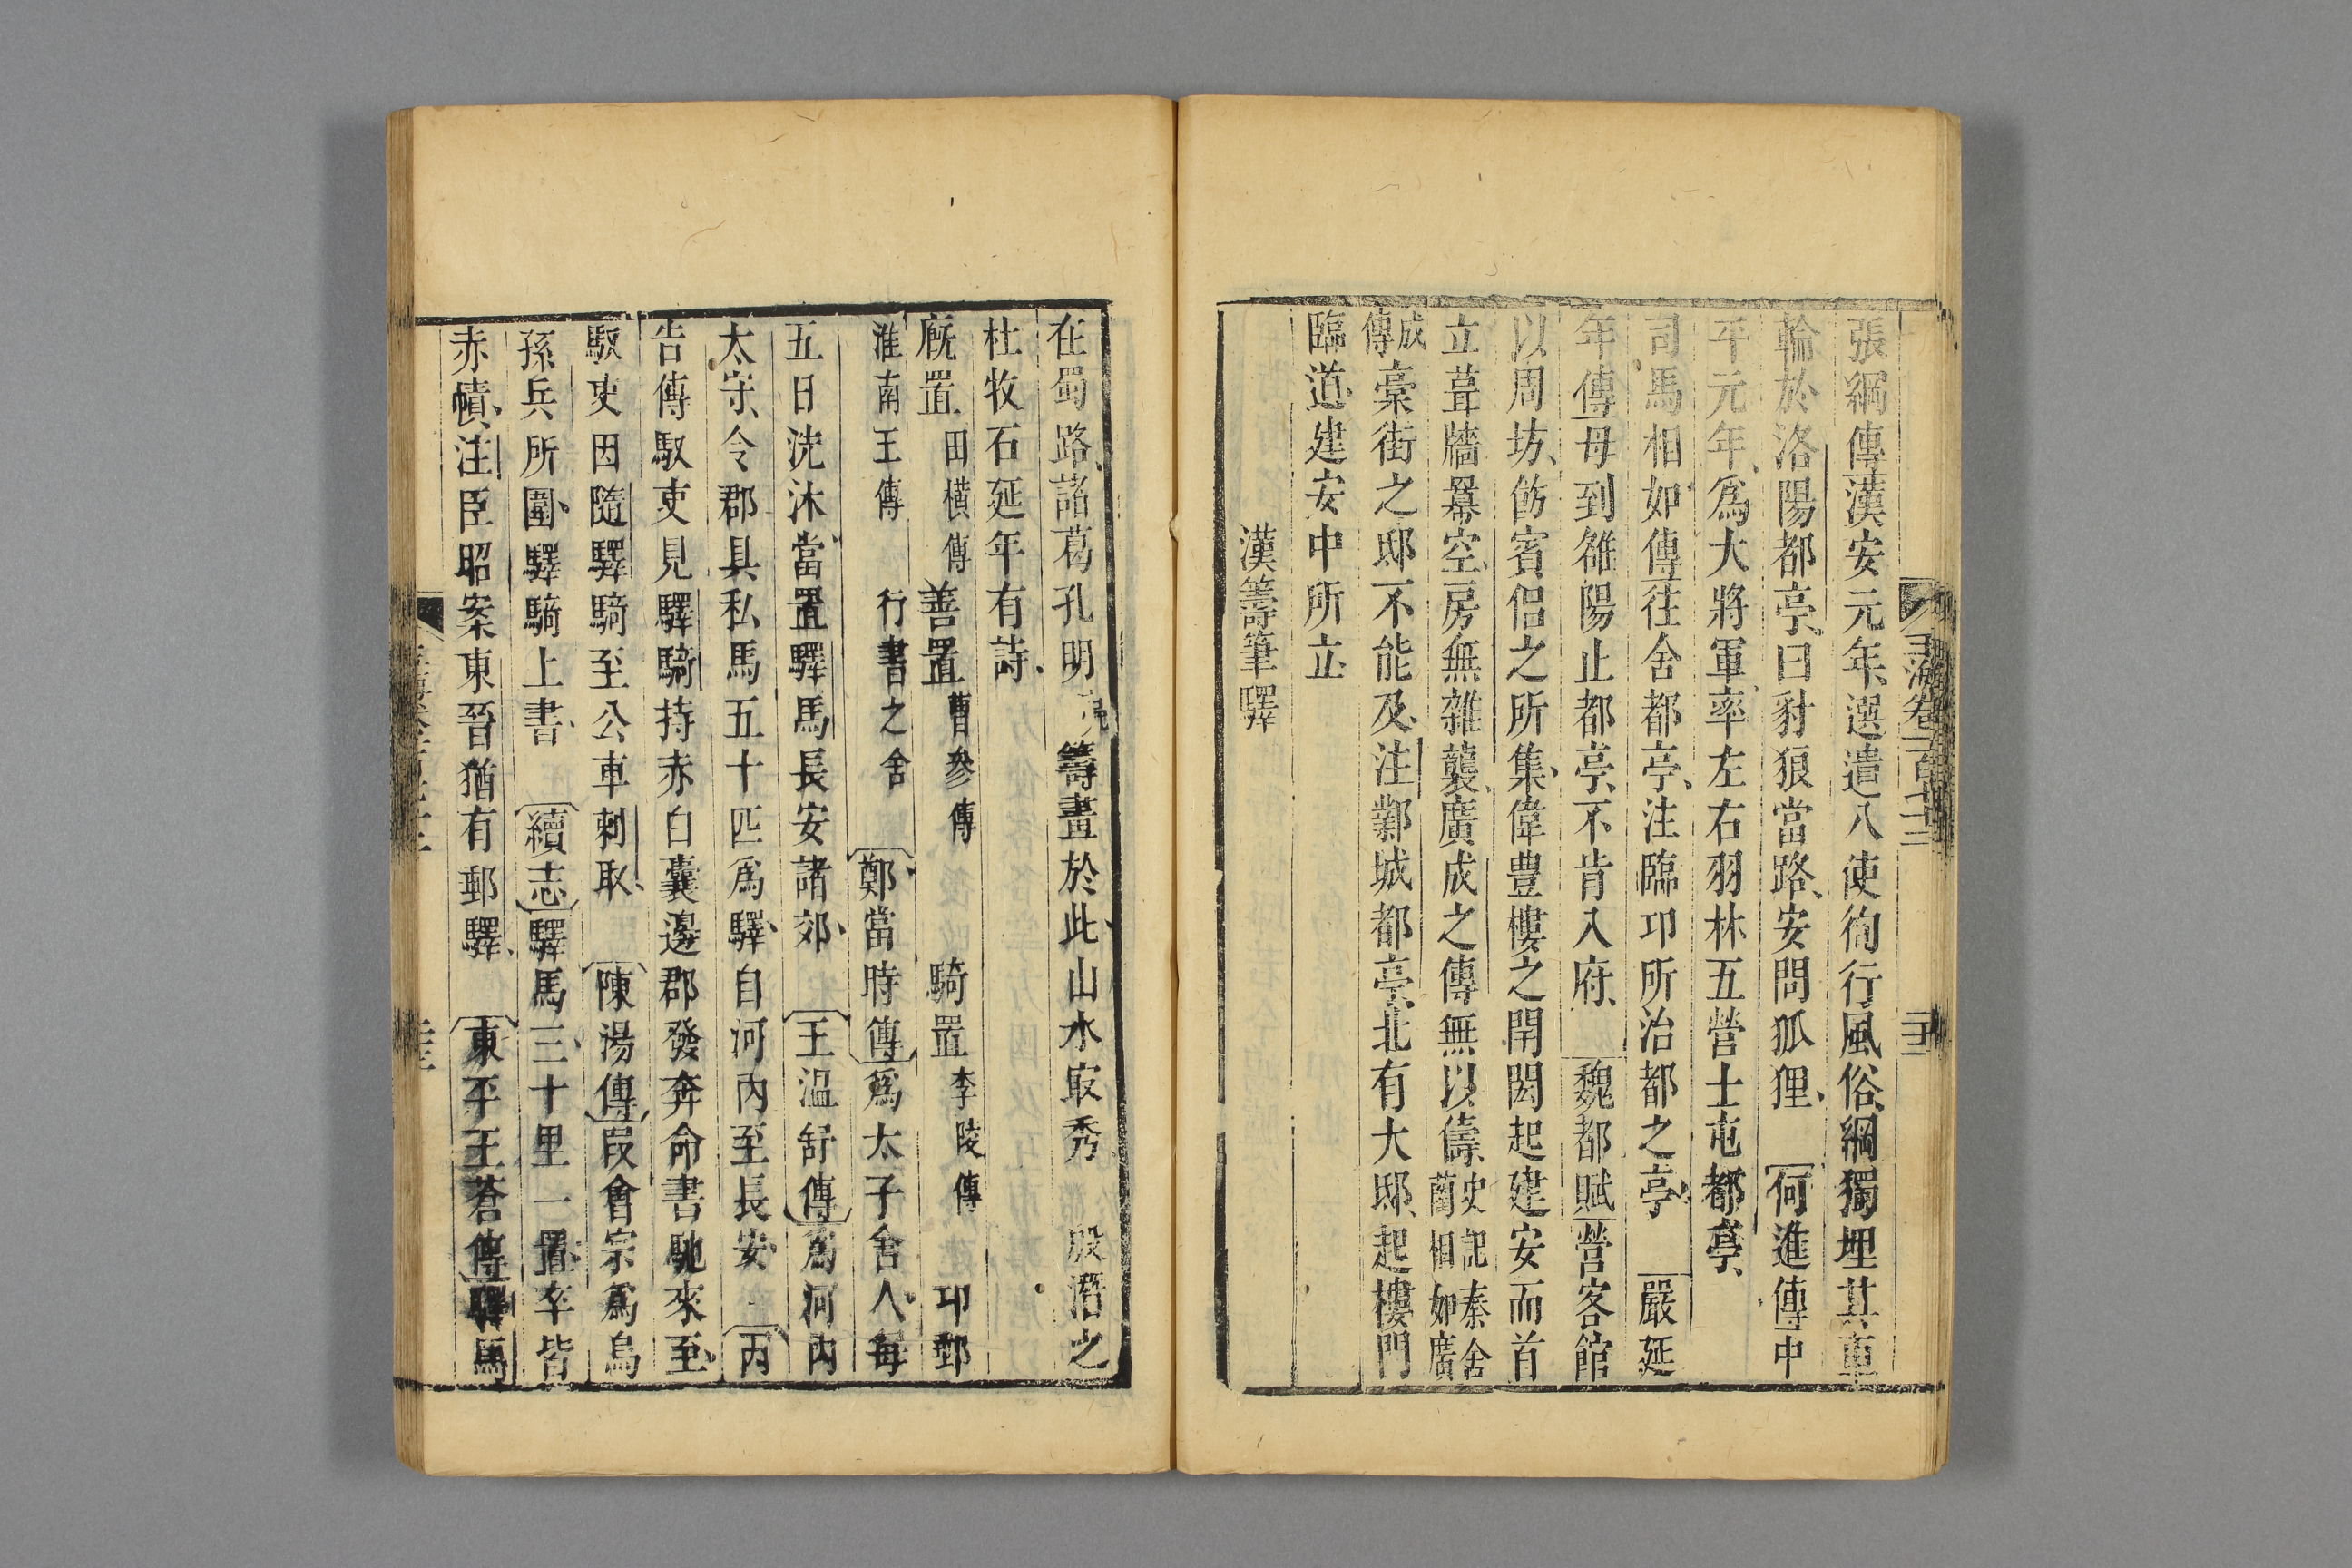 張綱傳漢安元年選遣八使徇行風俗綱獨埋其車
輪於洛陽都亭曰豺狼當路安問狐狸　何進傳中
平元年爲大將軍率左右羽林五營士屯都亭
司馬相如傳往舍都亭注臨卭所治都之亭　嚴延
年傳母到雒陽止都亭不肯入府　魏都賦營客館
以周坊飭賓侶之所集偉豐樓之閈閎起建安而首
立葺牆冪空房無雜襲廣成之傳無以儔史記秦舍藺相如廣
成傳稾街之邸不能及注鄴城都亭北有大邸起樓門
臨道建安中所立
漢籌筆驛
玉海卷一百七十二
在蜀路諸葛孔明亮籌畫於此山水㝡秀　殷潛之
杜牧石延年有詩
廐置田橫傳善置曹參傳　騎置李陵傳　卭郵
淮南王傳　行書之舍　鄭當時傳爲太子舍人每
五日洗沐當置驛馬長安諸郊　王溫舒傳爲河內
太守令郡具私馬五十匹爲驛自河內至長安　丙
吉傳馭吏見驛騎持赤白囊邊郡發奔命書馳來至
馭吏因隨驛騎至公車刺取　陳湯傳段會宗爲烏
孫兵所圍驛騎上書　續志驛馬三十里一置卒皆
赤幘注臣昭案東晉猶有郵驛　東平王蒼傳驛馬